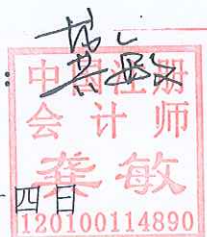 :
中国注册
会计师
龚敏
四日
120100114890